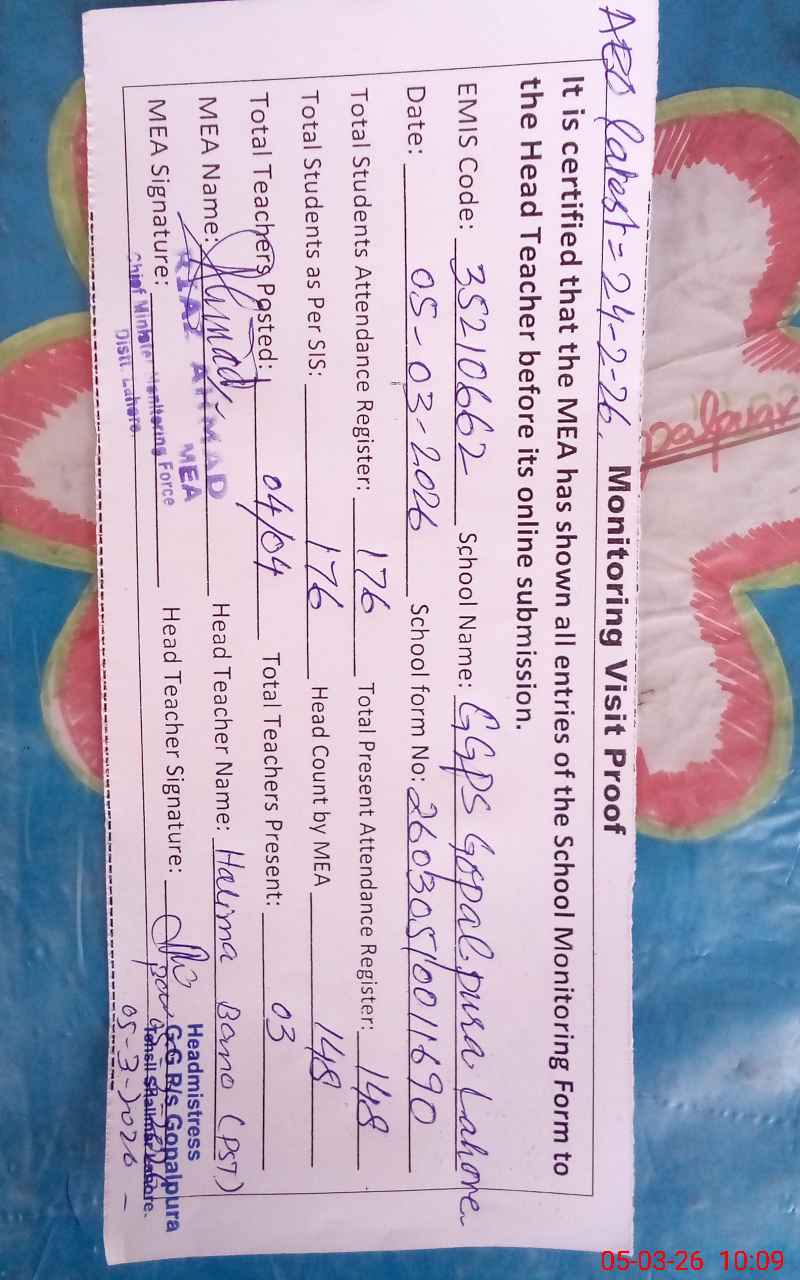 AEO latest = 24-2-26.
Monitoring Visit Proof
It is certified that the MEA has shown all entries of the School Monitoring Form to
the Head Teacher before its online submission.
EMIS Code: 35210662 School Name: GGPS Gopalpura Lahore
Date: 05-03-2026 School form No: 26030510011690
Total Students Attendance Register: 176 Total Present Attendance Register: 148
Total Students as Per SIS: 176 Head Count by MEA 148
Total Teachers Posted: 04/04 Total Teachers Present: 03
MEA Name: Head Teacher Name: Halima Bano (PST)
RIAZ AHMAD
MEA
MEA Signature: Head Teacher Signature:
Chief Minister Monitoring Force
Distt. Lahore.
Headmistress
G G P/s Gopalpura
Tehsil Shalimar Lahore.
05-3-2026
05-03-26 10:09